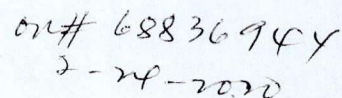 on# 68836944
2-24-2020